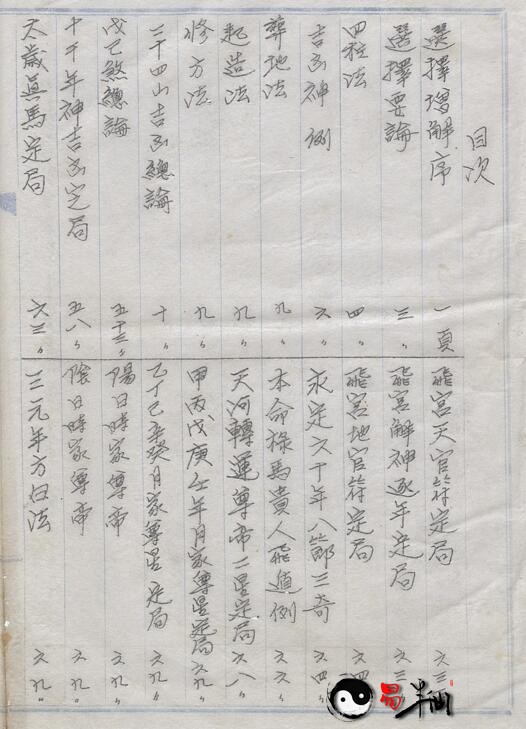 目次
選擇增解序 一頁
選擇要論 三〃
四柱法 四〃
吉凶神例 六〃
葬地法 九〃
起造法 九〃
修方法 九〃
二十四山吉凶總論 十〃
戊己煞總論 五十三〃
十干年神吉凶定局 五八〃
太歲眞馬定局 六三〃
飛宮天官符定局 六三
飛宮解神逐年定局 六三
飛宮地官符定局 六四
永定六十年八節三奇 六四〃
本命祿馬貴人飛遁例 六六〃
天河轉運尊帝二星定局 六八〃
甲丙戊庚壬年月家尊星定局 六九〃
乙丁己辛癸月家尊星定局 六九〃
陽日時家尊帝 六九〃
陰日時家尊帝 六九〃
三元年方白法 六九〃
易半仙